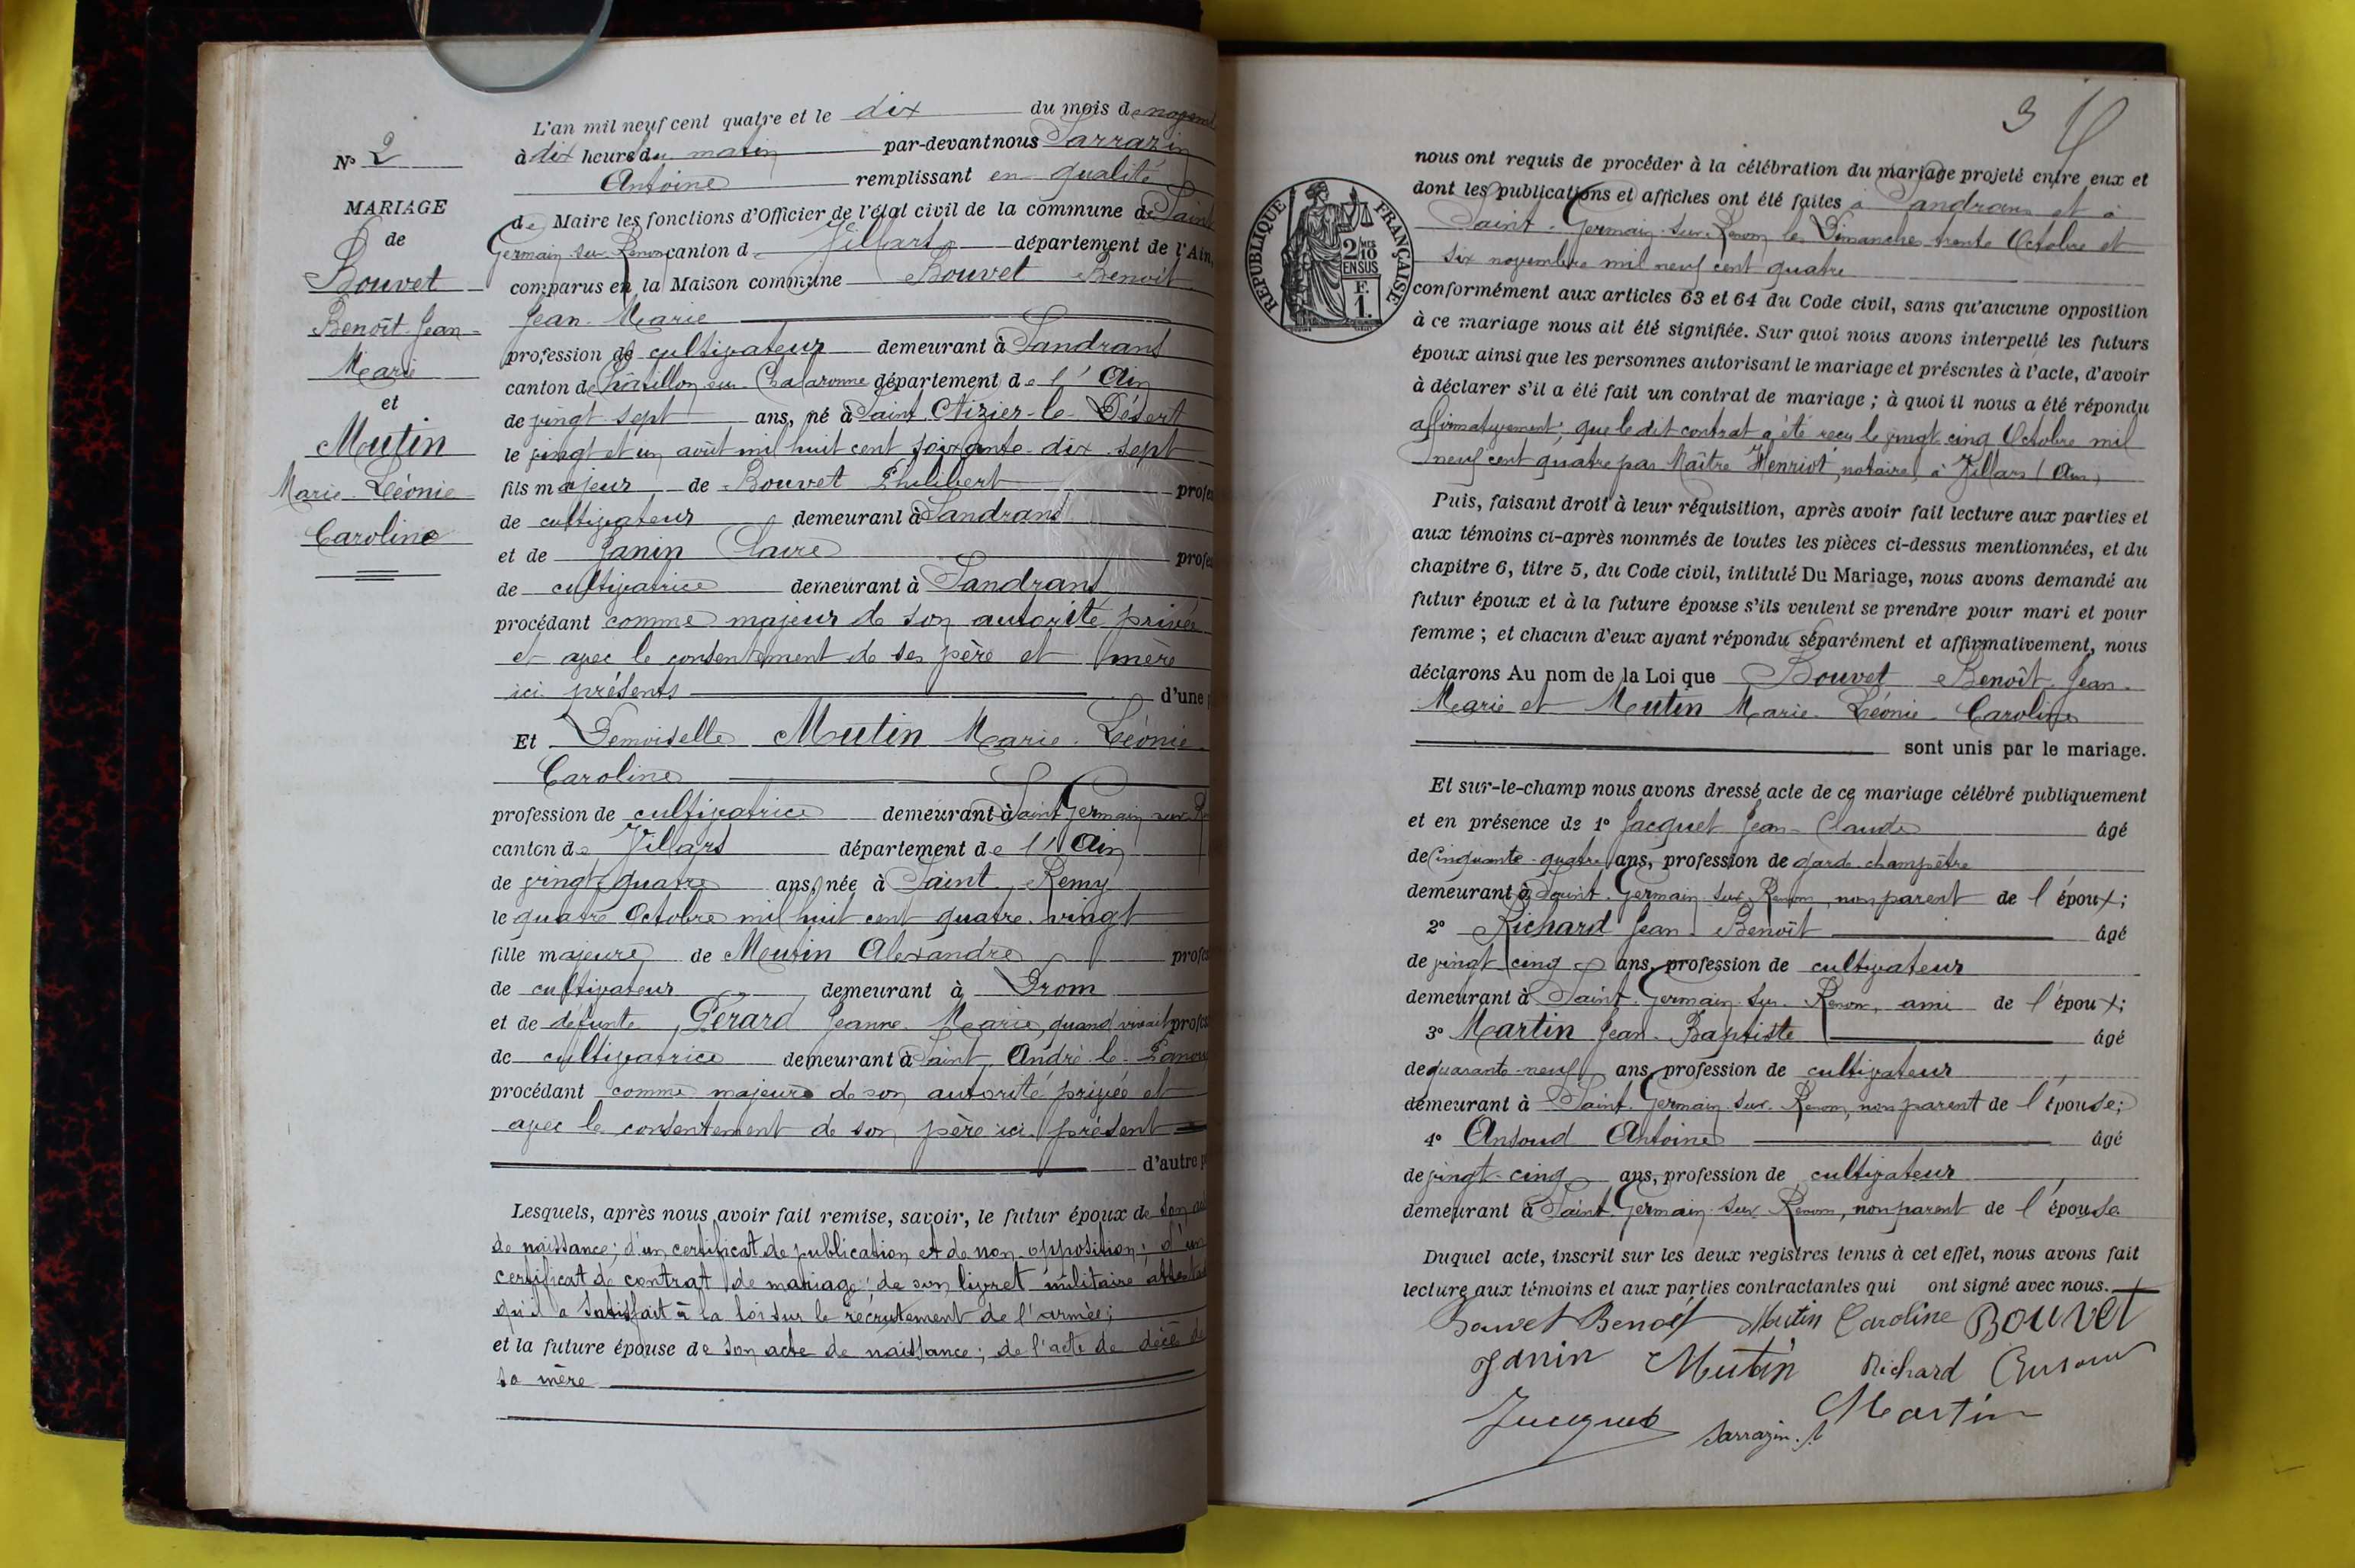 N° 2
MARIAGE
de
Bouvet
Benoît-Jean-
Marie
et
Mutin
Marie-Léonie
Caroline
L'an mil neuf cent quatre et le dix du mois de novem
à dix heures du matin par-devant nous Sarrazin
Antoine remplissant en qualité
de Maire les fonctions d'Officier de l'état civil de la commune de Saint
Germain-sur-Renon canton de Villars département de l'Ain,
comparus en la Maison commune Bouvet Benoît
Jean-Marie
profession de cultivateur demeurant à Sandrans
canton de Châtillon-sur-Chalaronne département de l'Ain
de vingt-sept ans, né à Saint Nizier-le-Désert
le vingt et un août mil huit cent soixante-dix-sept
fils majeur de Bouvet Philibert profes
de cultivateur demeurant à Sandrans
et de Janin Claire profes
de cultivatrice demeurant à Sandrans
procédant comme majeur de son autorité privée
et avec le consentement de ses père et mère
ici présents d'une p
Et Demoiselle Mutin Marie-Léonie-
Caroline
profession de cultivatrice demeurant à Saint Germain-sur-R
canton de Villars département de l'Ain
de vingt-quatre ans, née à Saint-Remy
le quatre Octobre mil huit cent quatre-vingt
fille majeure de Mutin Alexandre profes
de cultivateur demeurant à Drom
et de defunte Pérard Jeanne-Marie, quand vivait profes
de cultivatrice demeurant à Saint-André-le-Panoux
procédant comme majeure de son autorité privée et
avec le consentement de son père ici présent
d'autre p
Lesquels, après nous avoir fait remise, savoir, le futur époux de son ac
de naissance; d'un certificat de publication et de non-opposition; d'un
certificat de contrat de mariage; de son livret militaire attesta
qu'il a satisfait à la loi sur le recrutement de l'armée;
et la future épouse de son acte de naissance; de l'acte de décès de
sa mère
3
nous ont requis de procéder à la célébration du mariage projeté entre eux et
dont les publications et affiches ont été faites à Sandrans et à
Saint-Germain-sur-Renon les Dimanches trente Octobre et
six novembre mil neuf cent quatre
conformément aux articles 63 et 64 du Code civil, sans qu'aucune opposition
à ce mariage nous ait été signifiée. Sur quoi nous avons interpellé les futurs
époux ainsi que les personnes autorisant le mariage et présentes à l'acte, d'avoir
à déclarer s'il a été fait un contrat de mariage ; à quoi il nous a été répondu
affirmativement; que le dit contrat a été reçu le vingt-cinq Octobre mil
neuf cent quatre par Maître Henriot, notaire, à Villars (Ain)
Puis, faisant droit à leur réquisition, après avoir fait lecture aux parties et
aux témoins ci-après nommés de toutes les pièces ci-dessus mentionnées, et du
chapitre 6, titre 5, du Code civil, intitulé Du Mariage, nous avons demandé au
futur époux et à la future épouse s'ils veulent se prendre pour mari et pour
femme ; et chacun d'eux ayant répondu séparément et affirmativement, nous
déclarons Au nom de la Loi que Bouvet Benoît-Jean-
Marie et Mutin Marie-Léonie-Caroline
sont unis par le mariage.
Et sur-le-champ nous avons dressé acte de ce mariage célébré publiquement
et en présence de 1° Jacquet Jean-Claude âgé
de Cinquante-quatre ans, profession de garde-champêtre
demeurant à Saint-Germain-sur-Renon, non parent de l'époux;
2° Richard Jean-Benoît âgé
de vingt-cinq ans, profession de cultivateur
demeurant à Saint-Germain-sur-Renon, ami de l'époux;
3° Martin Jean-Baptiste âgé
de quarante-neuf ans, profession de cultivateur
demeurant à Saint-Germain-sur-Renon, non parent de l'épouse;
4° Ansoud Antoine âgé
de vingt-cinq ans, profession de cultivateur
demeurant à Saint-Germain-sur-Renon, non parent de l'épouse.
Duquel acte, inscrit sur les deux registres tenus à cet effet, nous avons fait
lecture aux témoins et aux parties contractantes qui ont signé avec nous.
Bouvet Benoît Mutin Caroline BOUVET
Janin Mutin Richard Ansoud
Jacquet Sarrazin. A Martin
RÉPUBLIQUE FRANÇAISE
2/10
EN SUS
F.
1.